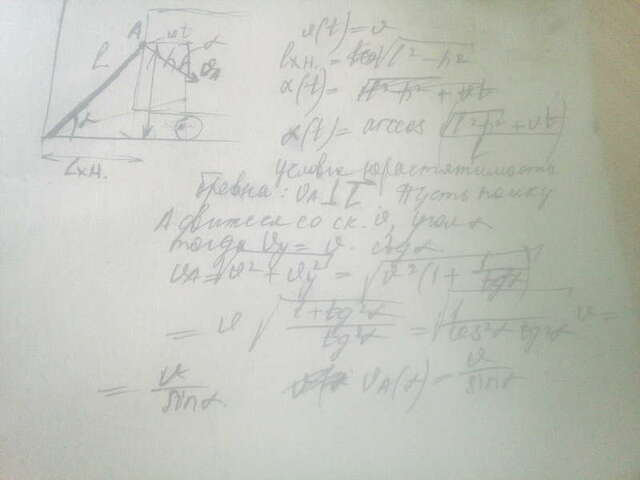 A vt α
l h v_A
α
l_xн.
v(t) = v
l_xн. = √(l² − h²)
α(t) = √(l² − h²) + vt
α(t) = arccos (√(l² − h²) + vt) / l
условие нерастяжимости
бревна: v_A ⊥ l Пусть точка
A движется со ск. v, угол α
тогда v_y = v · ctg α
v_A = √(v² + v_y²) = √(v²(1 + 1/tg²α))
= v √((1 + tg²α)/tg²α) = √(1/(cos²α tg²α)) v =
= v/sin α. v_A(α) = v/sin α